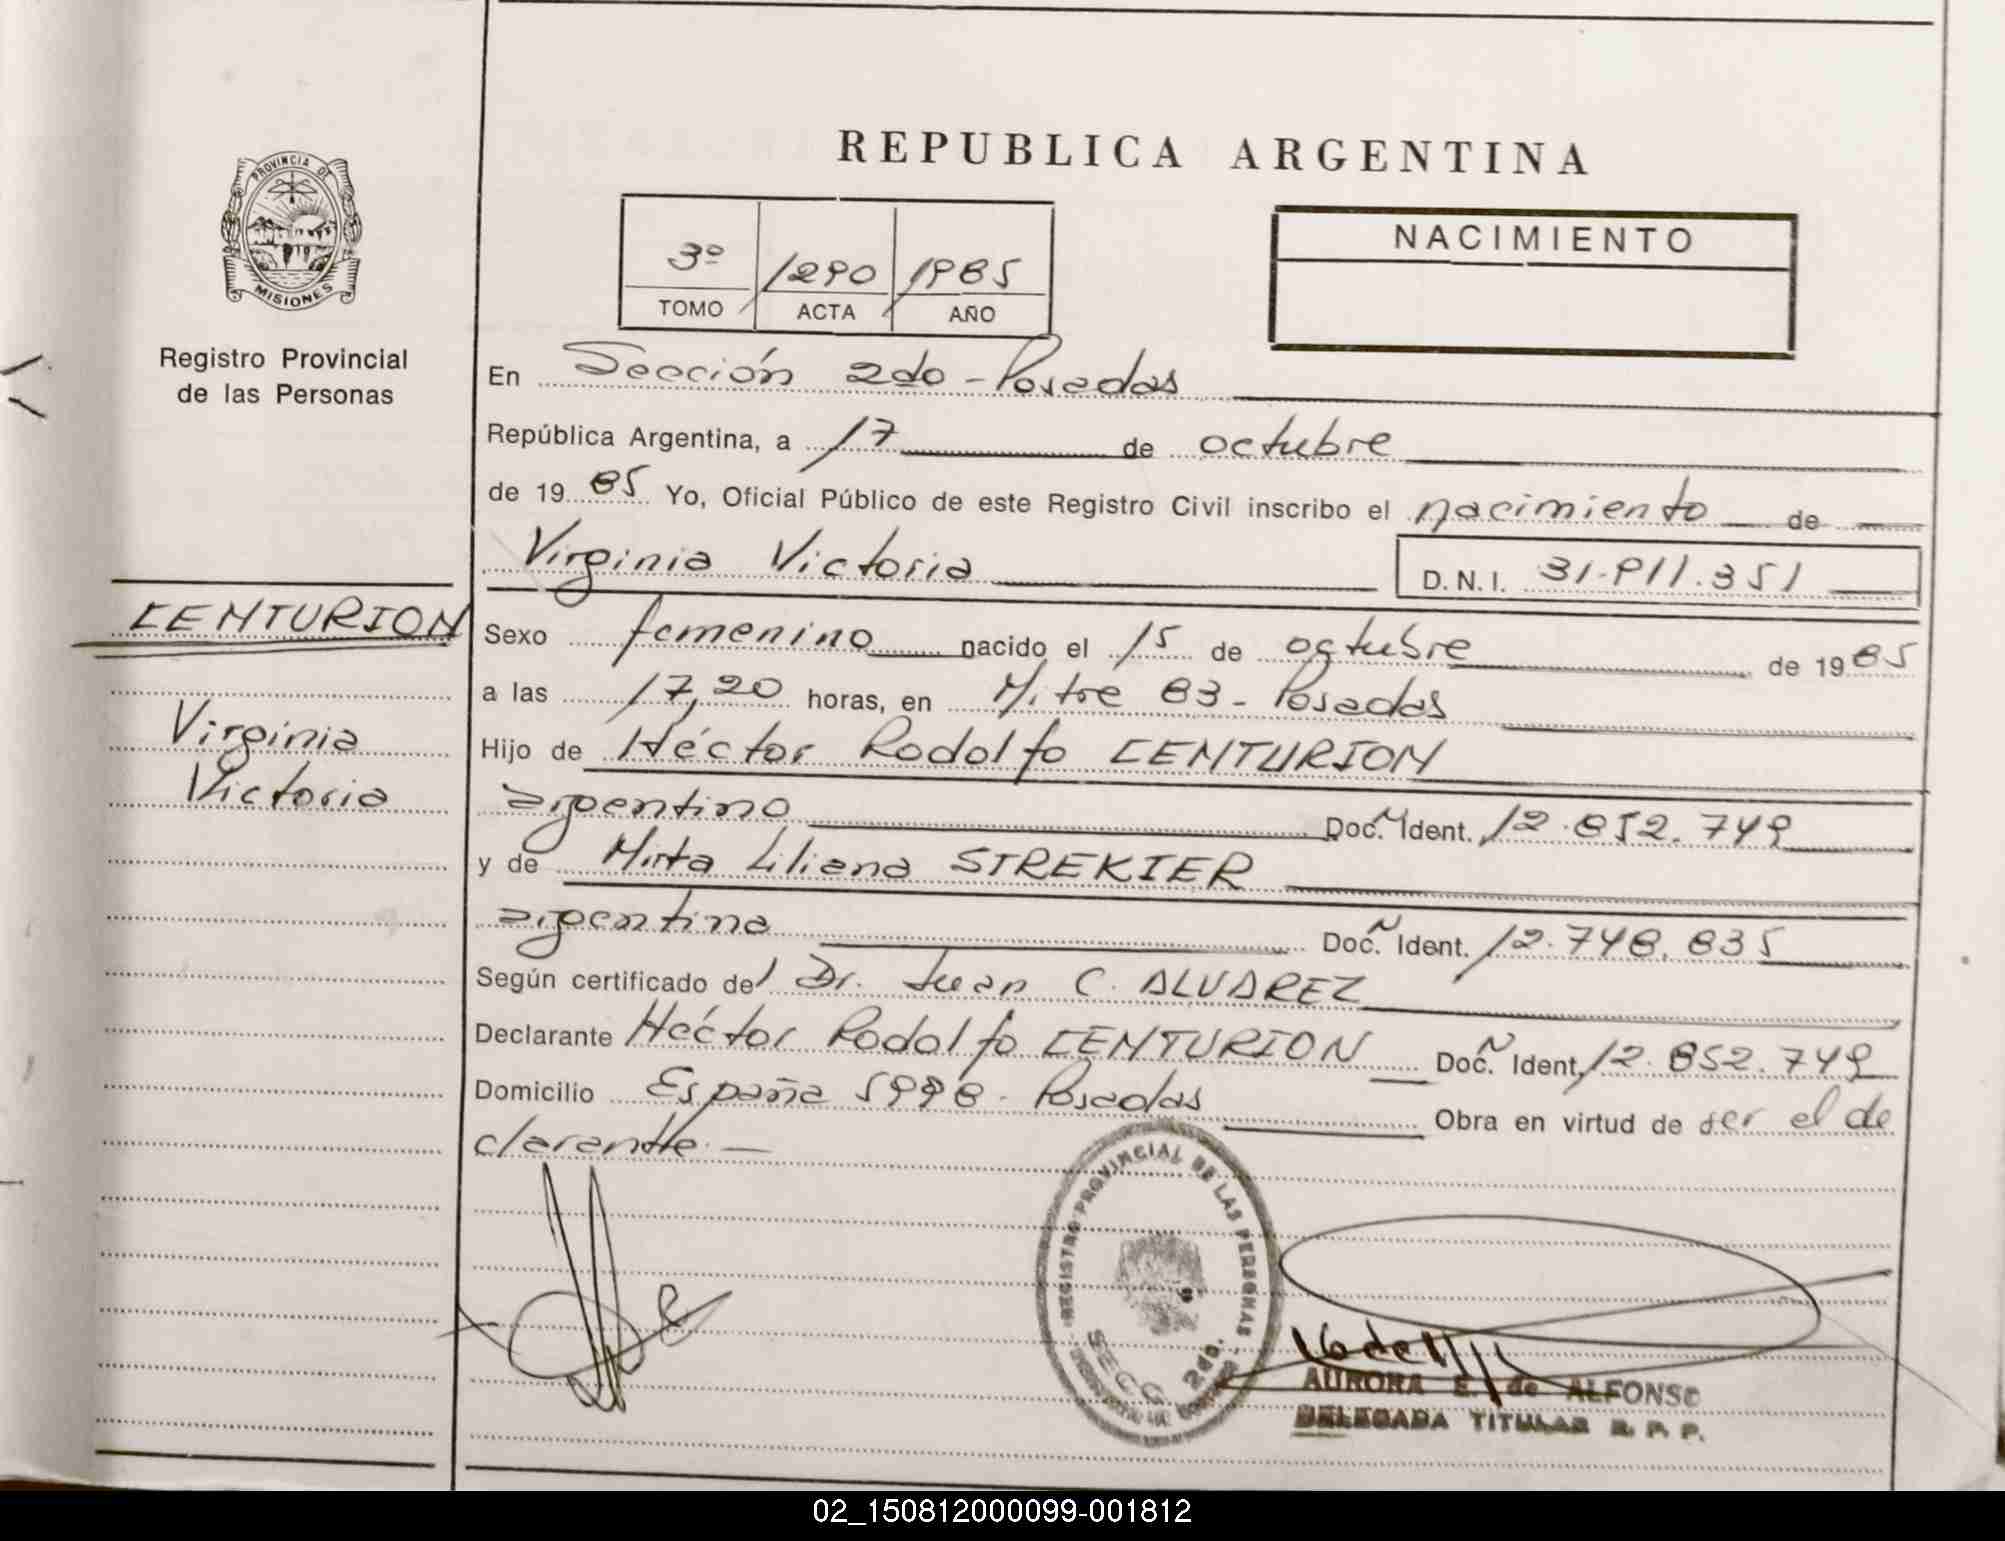 REPUBLICA ARGENTINA
PROVINCIA DE
MISIONES
Registro Provincial
de las Personas
3º 1290 1985
TOMO ACTA AÑO
NACIMIENTO
En Sección 2do - Posadas
República Argentina, a 17 de octubre
de 1985 Yo, Oficial Público de este Registro Civil inscribo el nacimiento de
Virginia Victoria D.N.I. 31.911.351
CENTURION
Virginia
Victoria
Sexo femenino nacido el 15 de octubre de 1985
a las 17,20 horas, en Mitre 83 - Posadas
Hijo de Héctor Rodolfo CENTURION
argentino Doc. Ident. 12.852.749
y de Mirta Liliana STREKIER
argentina Doc. Ident. 12.748.835
Según certificado del Dr. Juan C. ALVAREZ
Declarante Héctor Rodolfo CENTURION Doc. Ident. 12.852.749
Domicilio España 5998 - Posadas Obra en virtud de ser el de
clarante. —
REGISTRO PROVINCIAL DE LAS PERSONAS
SECC. 2da.
AURORA E. de ALFONSO
DELEGADA TITULAR R. P. P.
02_150812000099-001812